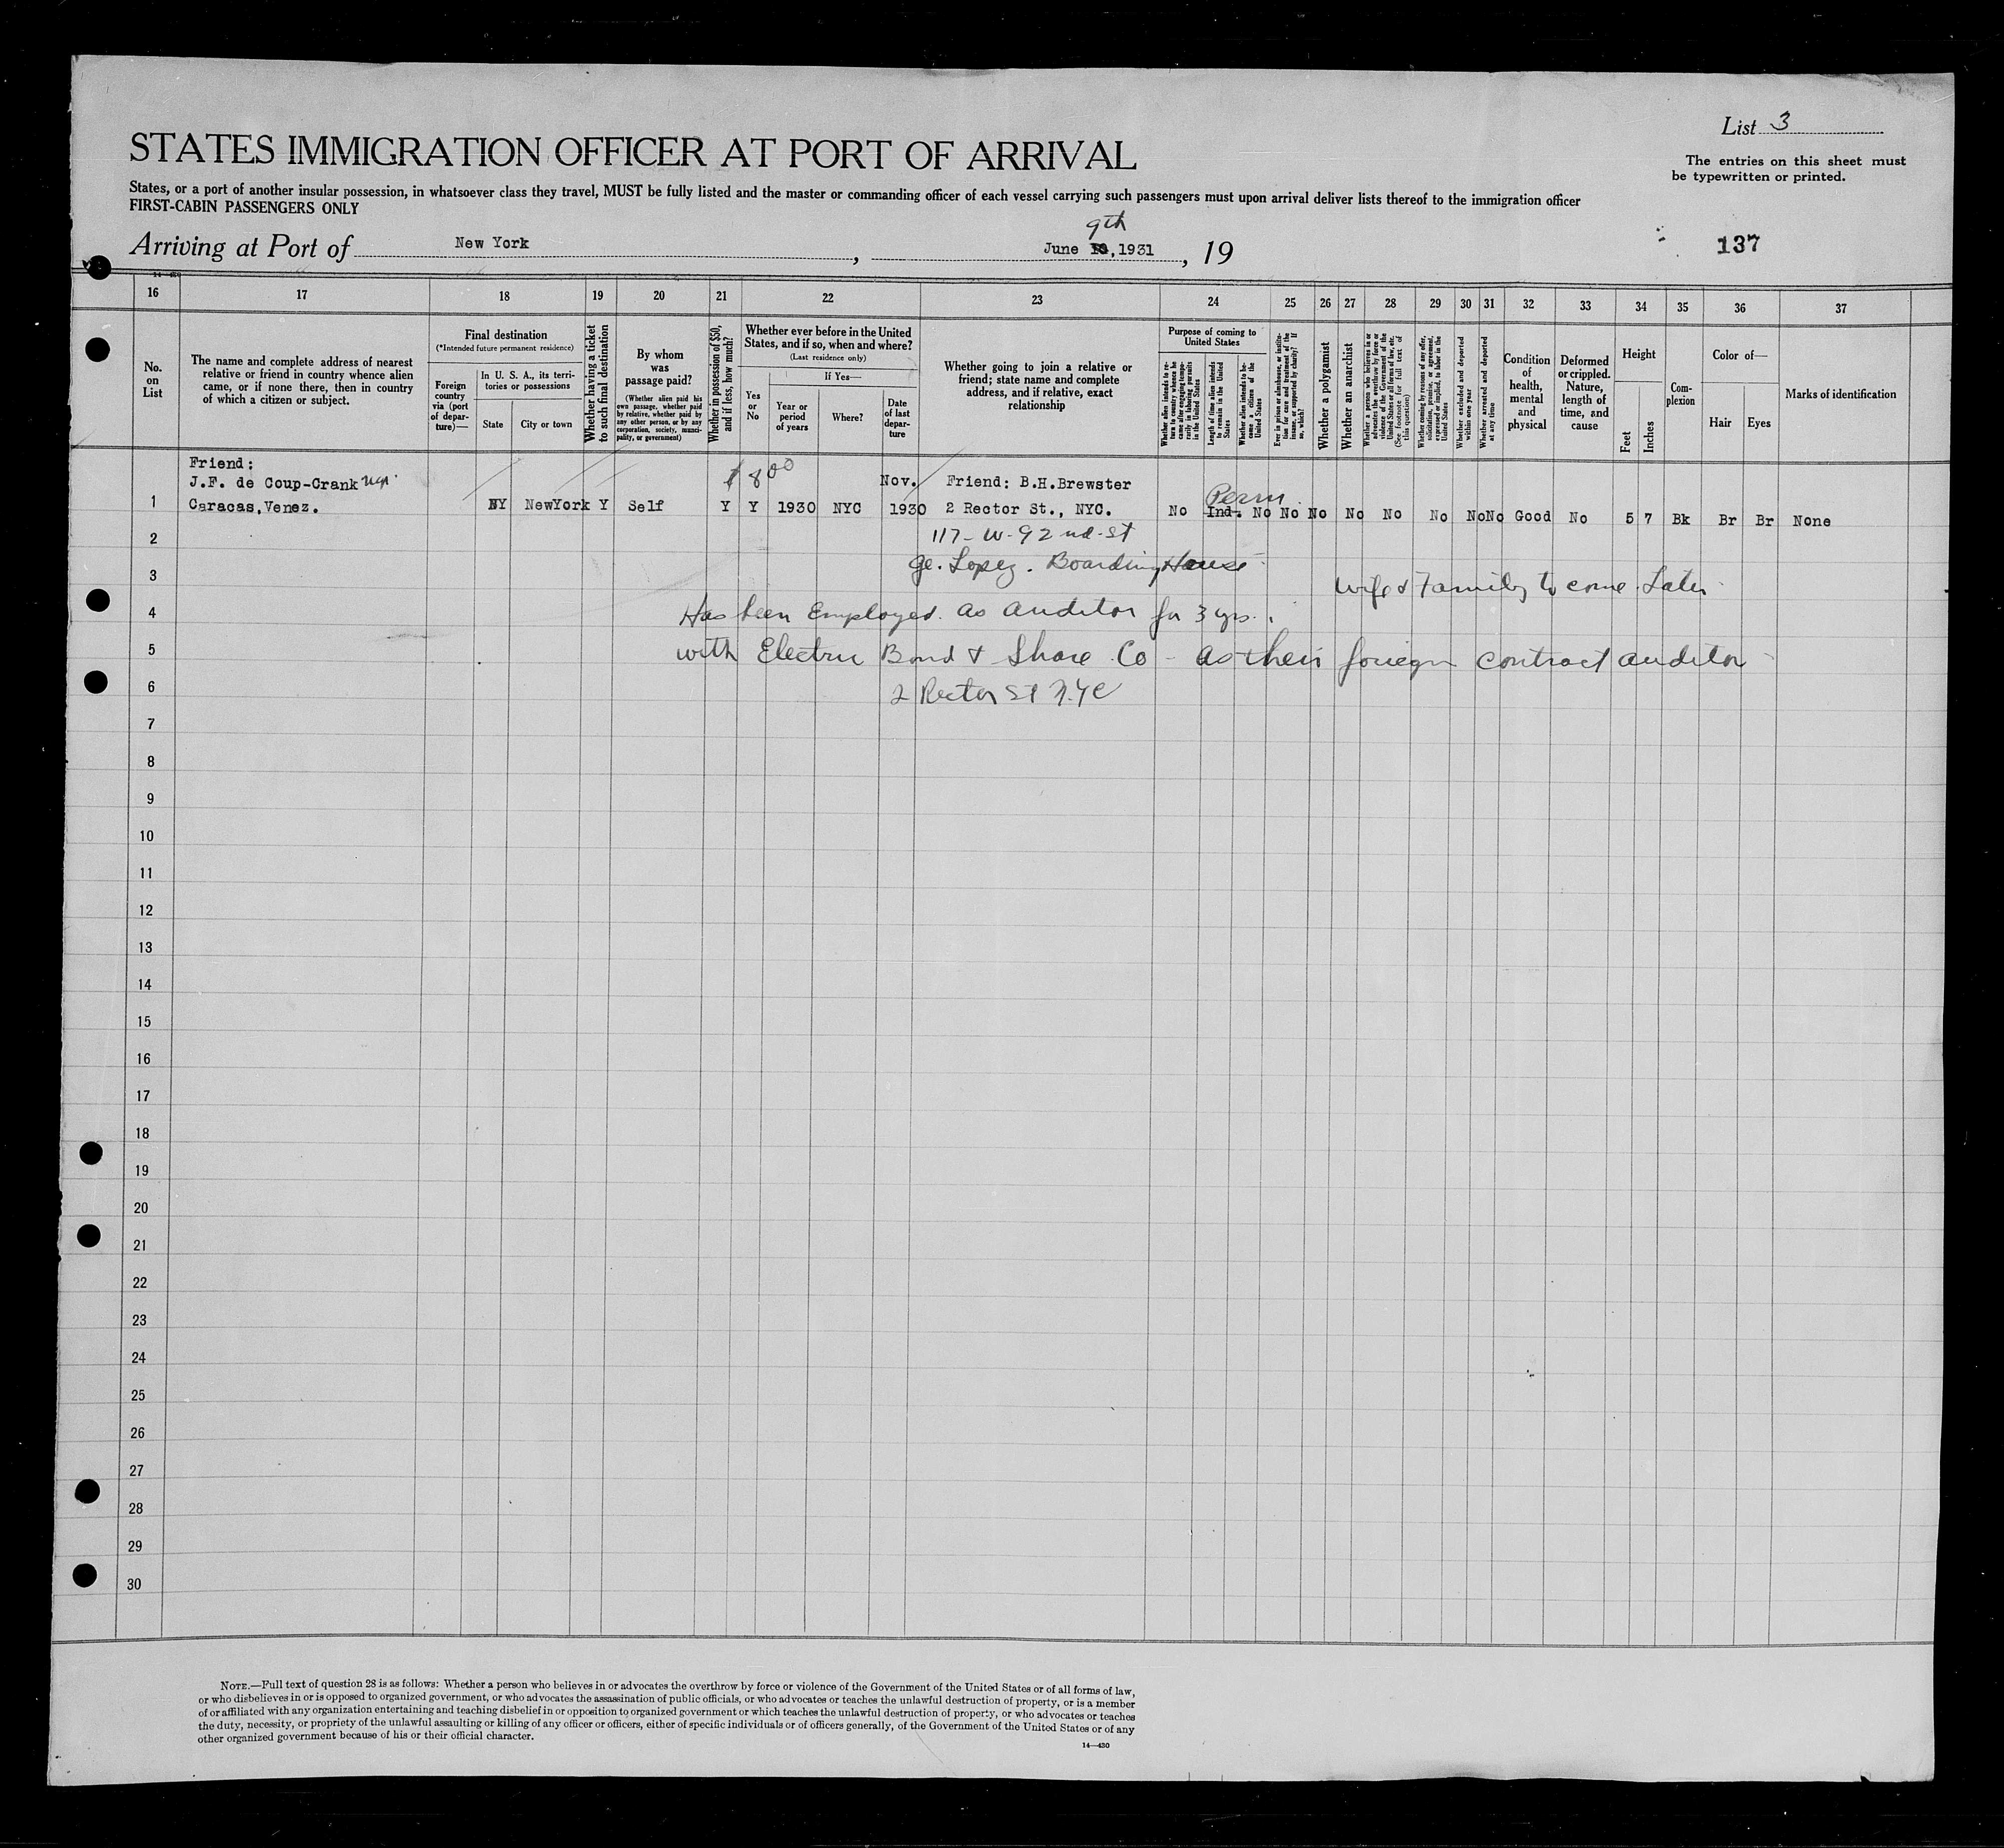 List 3
STATES IMMIGRATION OFFICER AT PORT OF ARRIVAL
The entries on this sheet must
be typewritten or printed.
States, or a port of another insular possession, in whatsoever class they travel, MUST be fully listed and the master or commanding officer of each vessel carrying such passengers must upon arrival deliver lists thereof to the immigration officer
FIRST-CABIN PASSENGERS ONLY
9th
Arriving at Port of New York, June 10, 1931, 19
137
16 17 18 19 20 21 22 23 24 25 26 27 28 29 30 31 32 33 34 35 36 37
No. on List
The name and complete address of nearest relative or friend in country whence alien came, or if none there, then in country of which a citizen or subject.
Final destination
(*Intended future permanent residence)
Foreign country via (port of departure)—
In U. S. A., its territories or possessions
State
City or town
Whether having a ticket to such final destination
By whom was passage paid?
(Whether alien paid his own passage, whether paid by relative, whether paid by any other person, or by any corporation, society, municipality, or government)
Whether in possession of $50, and if less, how much?
Whether ever before in the United States, and if so, when and where?
(Last residence only)
Yes or No
If Yes—
Year or period of years
Where?
Date of last departure
Whether going to join a relative or friend; state name and complete address, and if relative, exact relationship
Purpose of coming to United States
Whether alien intends to return to country whence he came after engaging temporarily in laboring pursuits in the United States
Length of time alien intends to remain in the United States
Whether alien intends to become a citizen of the United States
Ever in prison or almshouse, or institution for care and treatment of the insane, or supported by charity? If so, which?
Whether a polygamist
Whether an anarchist
Whether a person who believes in or advocates the overthrow by force or violence of the Government of the United States or all forms of law, etc. (See footnote for full text of this question)
Whether coming by reasons of any offer, solicitation, promise, or agreement, expressed or implied, to labor in the United States
Whether excluded and deported within one year
Whether arrested and deported at any time
Condition of health, mental and physical
Deformed or crippled. Nature, length of time, and cause
Height
Feet
Inches
Complexion
Color of—
Hair
Eyes
Marks of identification
Friend:
J.F. de Coup-Crank
$ 800
Nov. Friend: B.H.Brewster
Perm
1 Caracas,Venez. NY NewYork Y Self Y Y 1930 NYC 1930 2 Rector St., NYC. No Ind. No No No No No No No No Good No 5 7 Bk Br Br None
2 117- W-92nd-St
Lopez. Boarding House
3 Wife & Family to come Later
4 Has been Employed as auditor for 3 yrs.
5 with Electric Bond & Share Co - as their foreign contract auditor
6 2 Rector St N.Y.C
7
8
9
10
11
12
13
14
15
16
17
18
19
20
21
22
23
24
25
26
27
28
29
30
NOTE.—Full text of question 28 is as follows: Whether a person who believes in or advocates the overthrow by force or violence of the Government of the United States or of all forms of law,
or who disbelieves in or is opposed to organized government, or who advocates the assassination of public officials, or who advocates or teaches the unlawful destruction of property, or is a member
of or affiliated with any organization entertaining and teaching disbelief in or opposition to organized government or which teaches the unlawful destruction of property, or who advocates or teaches
the duty, necessity, or propriety of the unlawful assaulting or killing of any officer or officers, either of specific individuals or of officers generally, of the Government of the United States or of any
other organized government because of his or their official character.
14—430